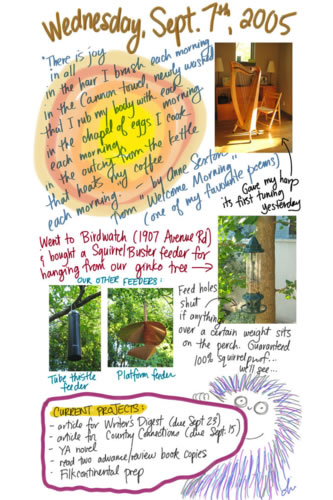 Wednesday, Sept. 7th, 2005
"There is joy
in all
in the hair I brush each morning
in the Cannon towel, newly washed
that I rub my body with each morning
in the chapel of eggs I cook
each morning
in the outcry from the kettle
that heats my coffee
each morning."
- by Anne Sexton
from "Welcome Morning"
(one of my favourite poems)
Gave my harp
its first tuning
yesterday
Went to Birdwatch (1907 Avenue Rd)
& bought a Squirrel Buster feeder for
hanging from our ginko tree →
OUR OTHER FEEDERS:
Tube thistle
feeder
Platform feeder
Feed holes
shut
if anything
over a certain weight sits
on the perch. Guaranteed
100% squirrel proof...
we'll see...
CURRENT PROJECTS:
- article for Writer's Digest (due Sept 23)
- article for Country Connections (due Sept. 15)
- YA novel
- read two advance/review book copies
- Filkcontinental prep